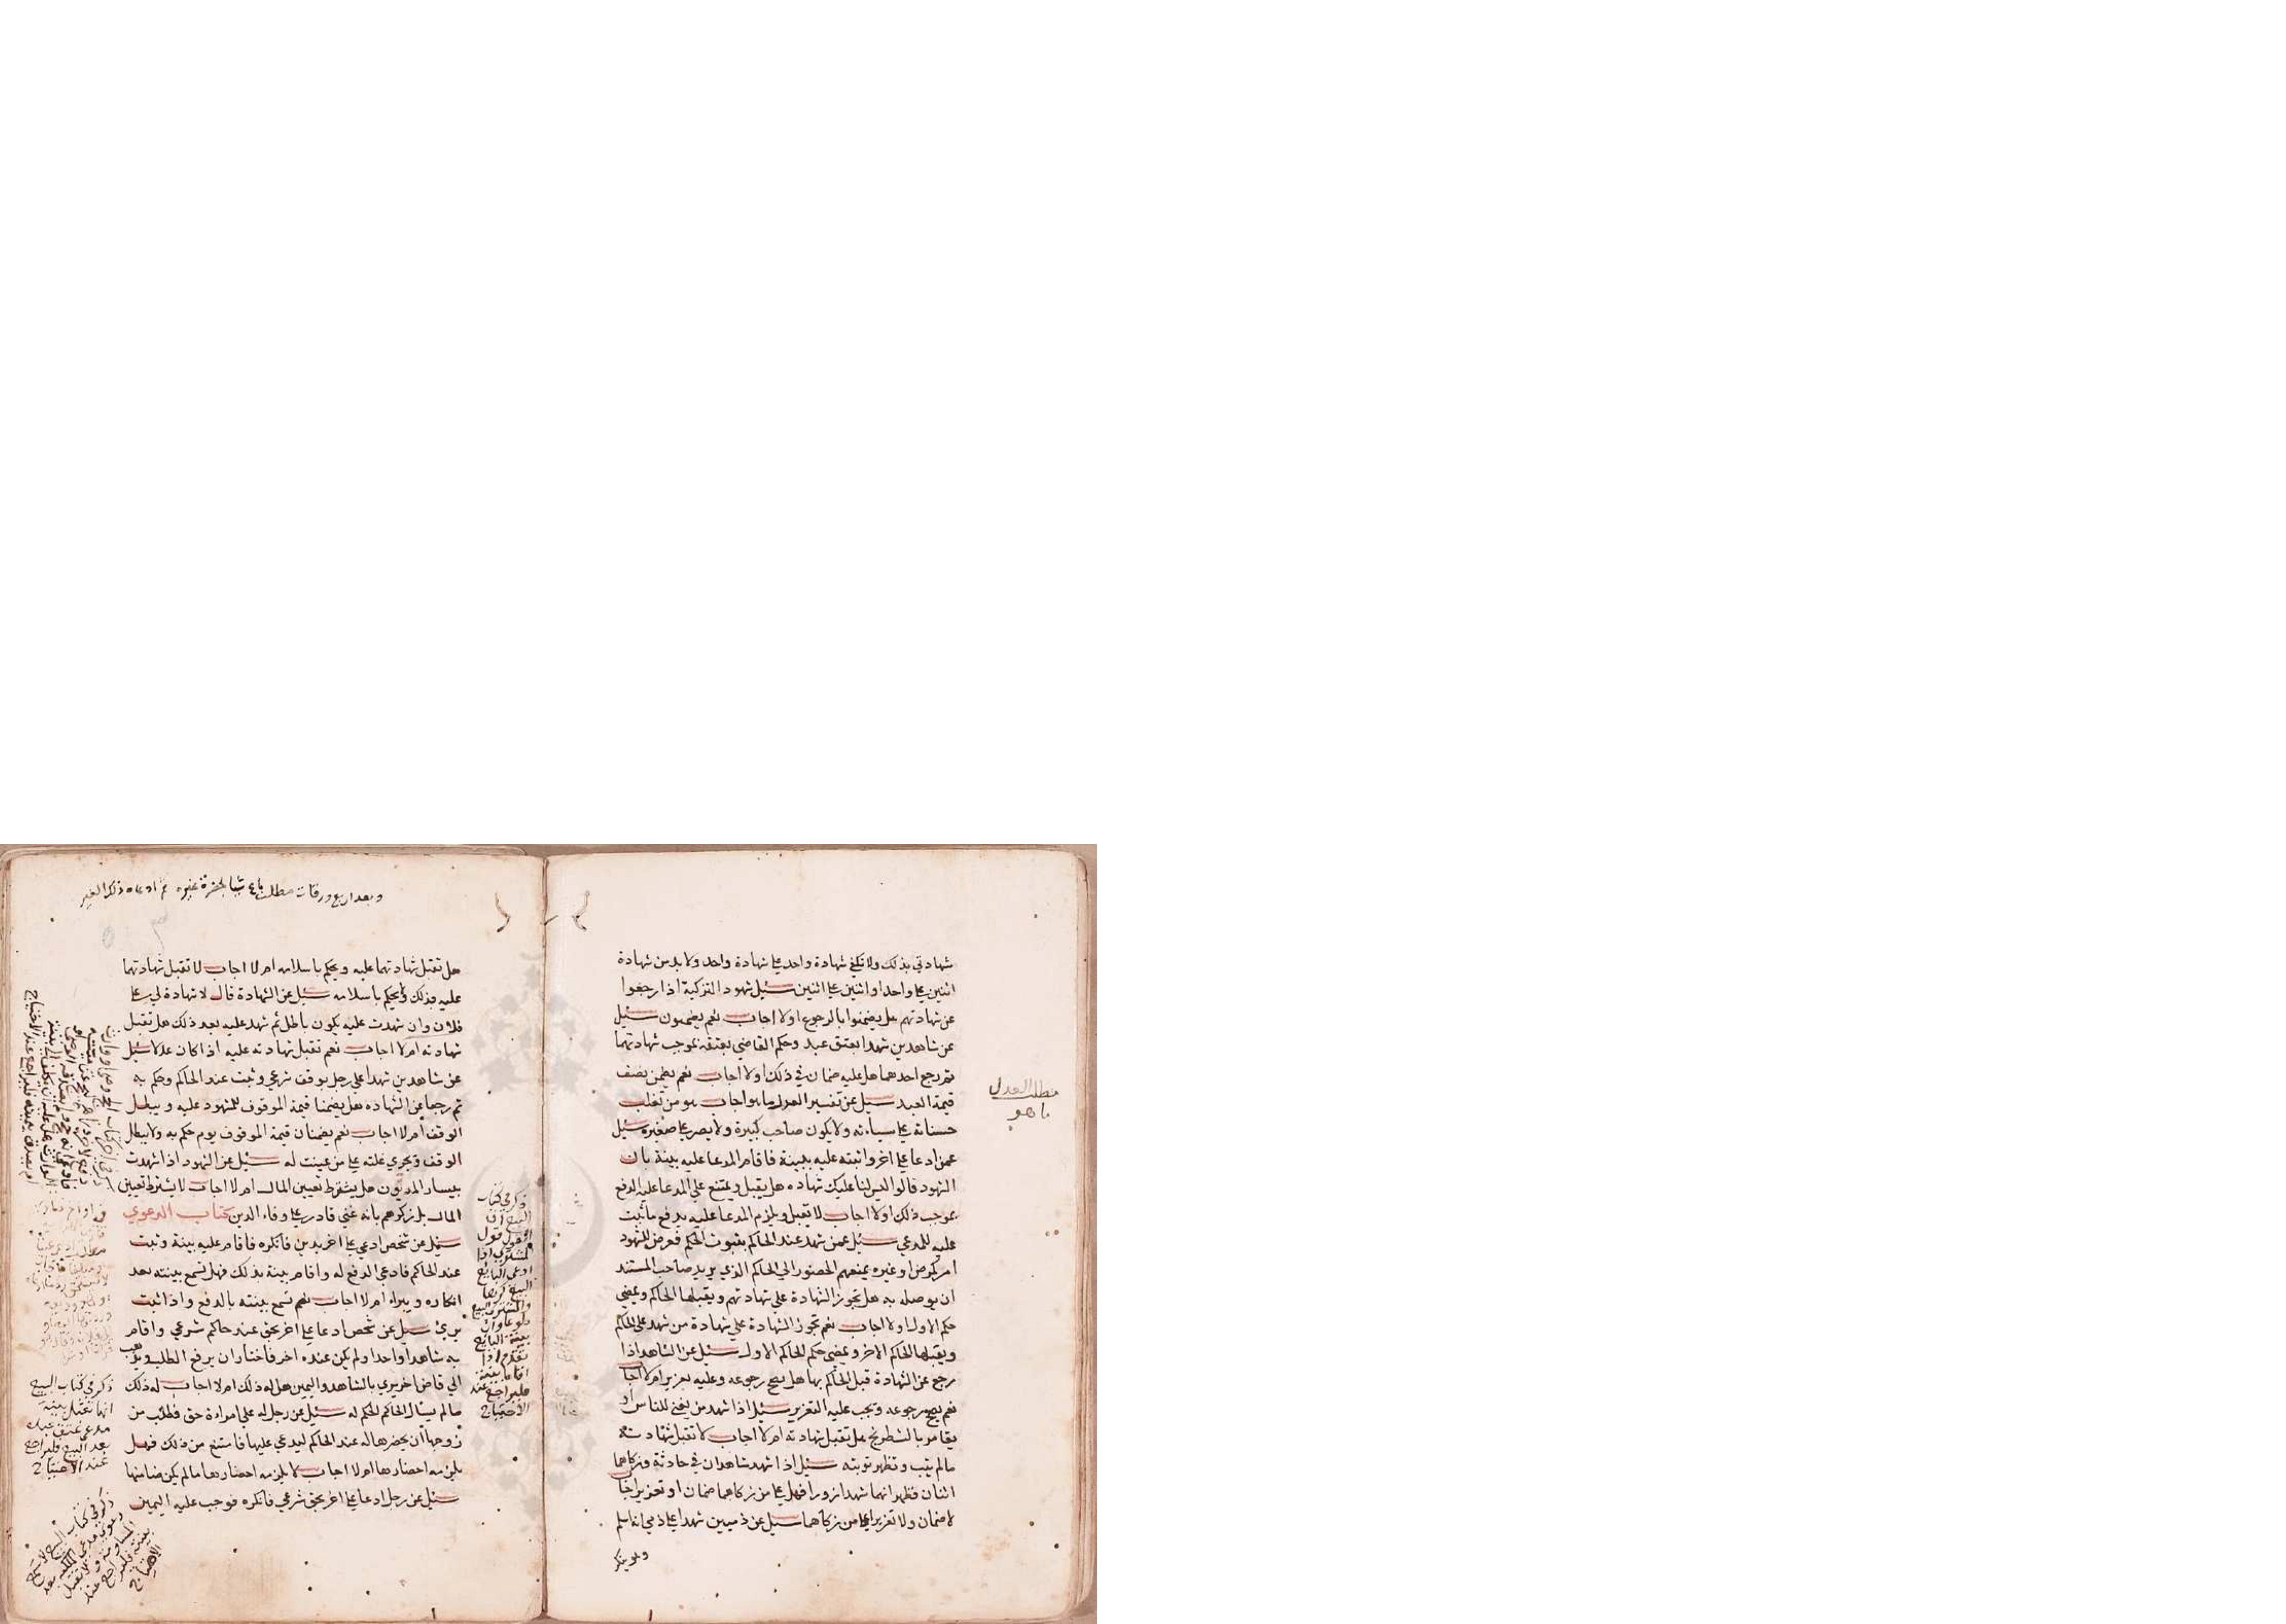 شهادتي بذلك ولا تكفي شهادة واحد على شهادة واحد ولا بد من شهادة
اثنين على واحد او اثنين على اثنين سئيل شهود التزكية اذا رجعوا
عن شهادتهم هل يضمنوا بالرجوع اولا اجاب نعم يضمنون سئيل
عن شاهدين شهدا بعتق عبد وحكم القاضي بعتقه بموجب شهادتهما
ثم رجع احدهما هل عليه ضمان في ذلك اولا اجاب نعم يضمن نصف
قيمة العبد سئيل عن تفسير العدل ما هو اجاب هو من تغلب
حسناته على سيأته ولا يكون صاحب كبيرة ولا يصر على صغيره سئيل
عمن ادعا على اخر واثبته عليه ببينة فاقام المدعا عليه بينة بان
الشهود قالوا ليس لنا عليك شهاده هل يقبل ويمتنع على المدعا عليه الدفع
بموجب ذلك اولا اجاب لا تقبل ويلزم المدعا عليه بدفع ما ثبت
عليه للمدعي سئيل عمن شهد عند الحاكم بثبوت الحكم فعرض للشهود
امر كمرض او غيره يمنعهم الحضور الى الحاكم الذي يريد صاحب المستند
ان يوصله به هل تجوز الشهادة على شهادتهم ويقبلها الحاكم ويمضي
حكم الاول اولا اجاب نعم تجوز الشهادة على شهادة من شهد على الحاكم
ويقبلها الحاكم الاخر ويمضي حكم الحاكم الاول سئيل عن الشاهد اذا
رجع عن الشهادة قبل الحكم بها هل يصح رجوعه وعليه تعزير ام لا اجاب
نعم يصح رجوعه ويجب عليه التعزير سئيل اذا شهد من يغني للناس او
يقامر بالشطرنج هل تقبل شهادته ام لا اجاب لا تقبل شهادته
مالم يتب وتظهر توبته سئيل اذا شهد شاهدان في حادثة وزكاهما
اثنان فظهر انهما شهدا زورا فهل على من زكاهما ضمان او تعزير اجاب
لا ضمان ولا تعزير على من زكاهما سئيل عن ذميين شهدا على ذمي انه اسلم
وهو ينكر
مطلب العدل
ما هو
وبعد اربع ورقات مطلب باع شيا بحضرة غيره ثم ادعاه ذلك الغير
هل تقبل شهادتهما عليه ويحكم باسلامه ام لا اجاب لا تقبل شهادتهما
عليه بذلك ولا يحكم باسلامه سئيل عن الشهادة قال لا شهادة لي على
فلان وان شهدت عليه يكون باطل ثم شهد عليه بعد ذلك هل تقبل
شهادته ام لا اجاب نعم تقبل شهادته عليه اذا كان عدلا سئيل
عن شاهدين شهدا على رجل بوقف شرعي وثبت عند الحاكم وحكم به
ثم رجعا عن الشهاده هل يضمنا قيمة الموقوف للمشهود عليه ويبطل
الوقف ام لا اجاب نعم يضمنان قيمة الموقوف يوم حكم به ولا يبطل
الوقف وتجري غلته على من عينت له سئيل عن الشهود اذا شهدت
بيسار المديون هل يشترط تعيين المال ام لا اجاب لا يشترط تعيين
المال بل تزكرهم بانه غني قادر على وفاء الدين كتاب الدعوي
سئيل عن شخص ادعي على اخر بدين فانكره فاقام عليه بينة وثبت
عند الحاكم فادعي الدفع له واقام بينة بذلك فهل تسمع بينته بعد
انكاره ويبراء ام لا اجاب نعم تسمع بينته بالدفع واذا ثبت
بري سئيل عن شخص ادعا على اخر بحق عند حاكم شرعي واقام
به شاهدا واحدا ولم يكن عنده اخر فاختار ان يرفع الطلب
الي قاض اخر يري بالشاهد واليمين هل له ذلك ام لا اجاب له ذلك
مالم يسأل الحاكم الحكم له سئيل عن رجل له على امراءة حق فطلب من
زوجها ان يحضرها له عند الحاكم ليدعي عليها فامتنع من ذلك فهل
يلزمه احضارها ام لا اجاب لا يلزمه احضارها مالم يكن ضامنها
سئيل عن رجل ادعا على اخر بحق شرعي فانكره فوجب عليه اليمين
ذكر في كتاب
البيع ان
القول قول
المشتري اذا
ادعى البائع
البيع كرها
والمشتري البيع
طوعا وان
بينة البائع
تقدم اذا
اقاما بينة
فليراجع عند
الاحتياج
ذكر في كتاب البيع
انها تقبل بينة
مدعي عتق عبده
بعد البيع فليراجع
عند الاحتياج
ذكر في كتاب البيع لا تسمع